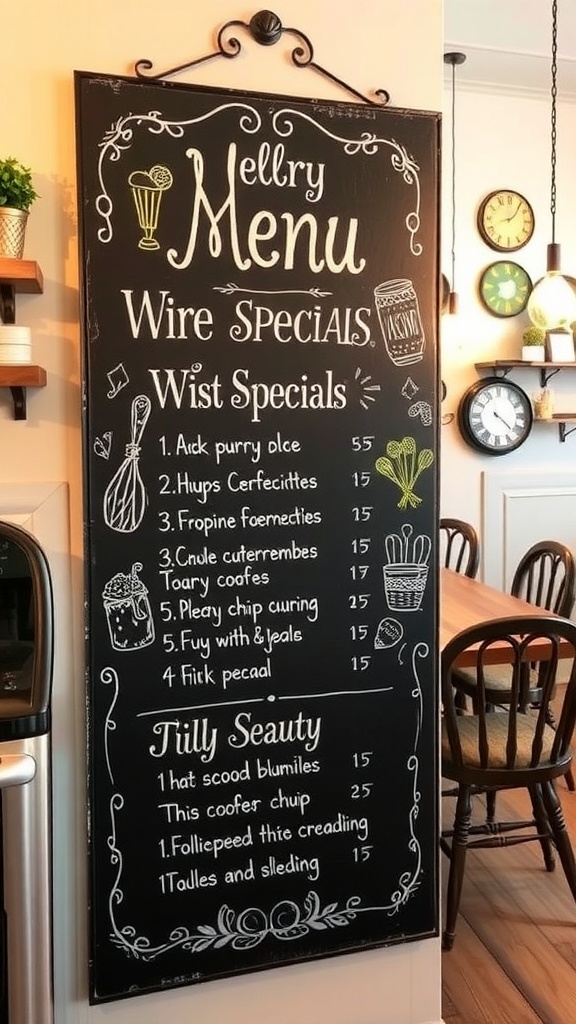 Mellry
Menu
Wire Specials
Wist Specials
1. Adk purry olce 55
2. Hups Cerfecittes 15
3. Fropine foernecties 15
3. Cnule cuterrembes 15
Toary coofes 17
5. Pleay chip curing 25
5. Fuy with & jeals 15
4 Firk pecaal 15
Jiilly Seauty
1hat scood blumiles 15
This coofer chup 25
1. Folliepeed thre creadling
1Tadles and slleding 15